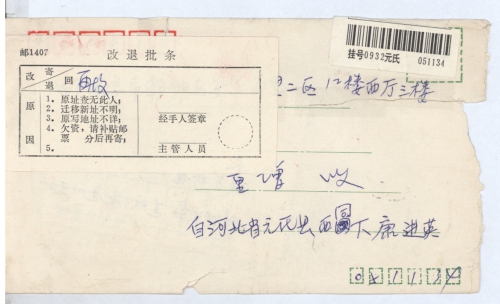 邮1407
改退批条
挂号0932元氏
051134
改
寄
退
回
原
因
1. 原址查无此人;
2. 迁移新址不明;
3. 原写地址不详;
4. 欠资,请补贴邮
票 分后再寄;
5.
经手人签章
主管人员
二区12楼西厅三楼
收
自河北省元氏县西 下康进英